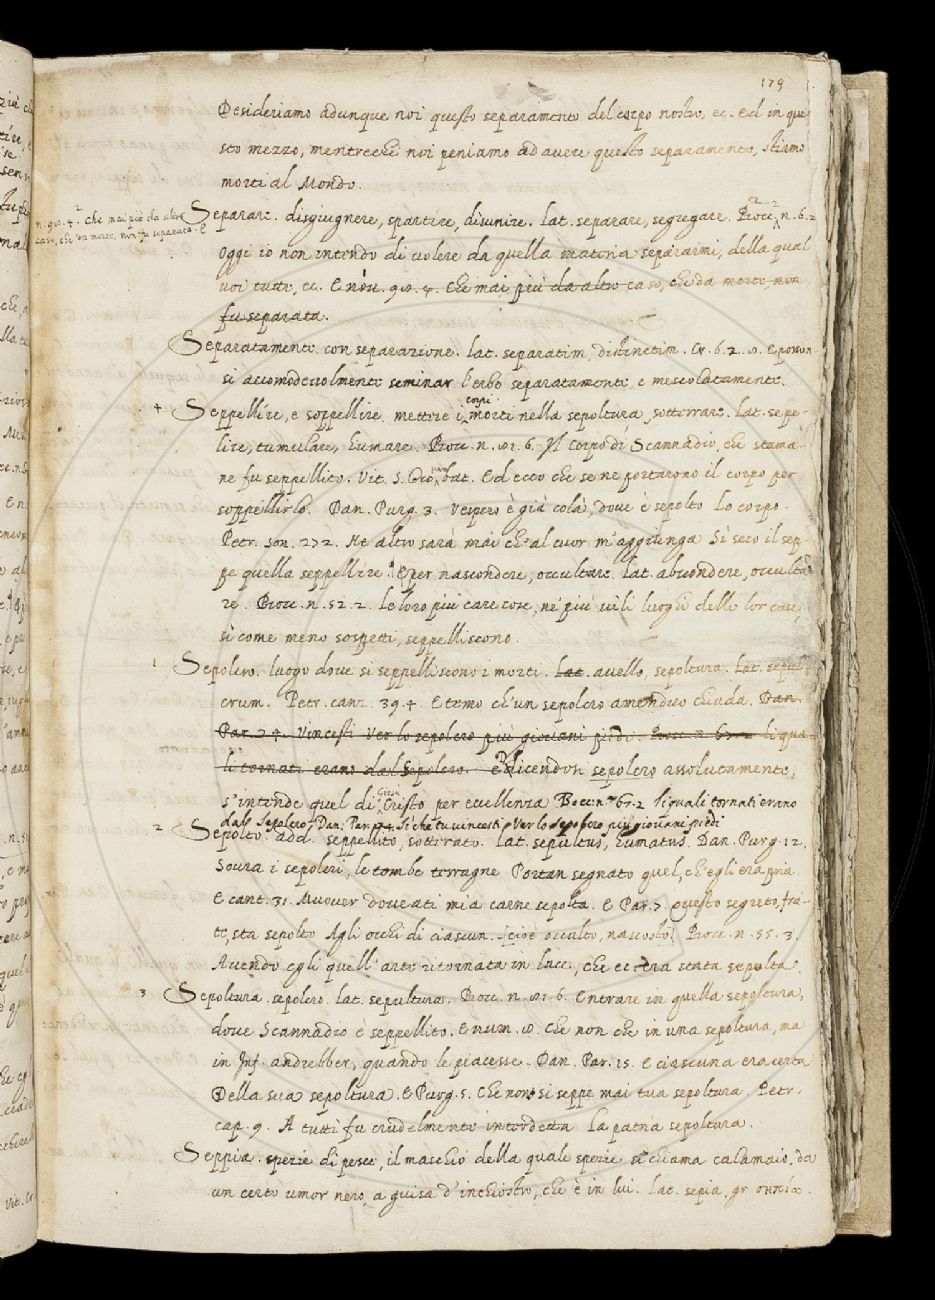 179
Desideriamo adunque noi questo separamento del corpo nostro, ec. Ed in que-
sto mezzo, mentreche noi peniamo ad avere questo separamento, stiamo
morti al Mondo.
n. 90. 4. che mai più da altro
caso, che da morte, non fu separata. E
Separare. disgiugnere, spartire, disunire. Lat. separare, segregare. Bocc. n. 6. 2
Oggi io non intendo di volere da quella materia separarmi, della qual
voi tutti, ec. E nov. 90. 4. Che mai più da altro caso, che da morte, non
fu separata.
Separatamente. con separazione. Lat. separatim, distinctim. Cr. 6. 2. E posson-
si accomodevolmente seminar l'erbe separatamente, e mescolatamente.
+ Seppellire, e soppellire. mettere i corpi morti nella sepoltura, sotterrare. Lat. sepe-
lire, tumulare, humare. Bocc. n. 6. Il corpo di Scannadio, che stama-
ne fu seppellito. Vit. S. Gio. bat. Ed ecco che se ne portarono il corpo per
soppellirlo. Dan. Purg. 3. Vespero è già colà, dove è sepolto Lo corpo.
Petr. son. 272. Ne altro sarà mai ch'al cuor m'aggiunga Sì seco il sep-
pe quella seppellire. E per nascondere, occultare. Lat. abscondere, occulta-
re. Bocc. n. 52. 2. Le loro più care cose, ne' più vili luoghi delle lor case,
sì come meno sospetti, seppelliscono.
1 Sepolcro. luogo dove si seppelliscono i morti. Lat. avello, sepoltura. Lat. sepul-
crum. Petr. canz. 39. 4. E temo ch'un sepolcro amenduo chiuda. Dan.
Par. 24. Vincesti Ver lo sepolcro più giovani piedi. Bocc. n. 67. 2 li qua-
li tornati erano dal Sepolcro. E dicendosi sepolcro assolutamente,
s'intende quel di Giesù Cristo per eccellenza Bocc. n. 67. 2 li quali tornati erano
dal Sepolcro Dan. Par. 24. Sì che tu vincesti Ver lo sepolcro più giovani piedi
2 Sepolto. add. seppellito, sotterrato. Lat. sepultus, humatus. Dan. Purg. 12.
Sovra i sepolcri, le tombe terragne Portan segnato quel, ch'egli era pria.
E cant. 31. Muover doveati mia carne sepolta. E Par. 7. Questo segreto, fra-
te, sta sepolto Agli occhi di ciascun. cioè occulto, nascosto. Bocc. n. 55. 3.
Avendo egli quell'arte ritornata in luce, che ec. era stata sepolta.
3 Sepoltura. sepolcro. Lat. sepultura. Bocc. n. 6. Entrare in quella sepoltura,
dove Scannadio è seppellito. E num. Che non che in una sepoltura, ma
in Inf. andrebber, quando le piacesse. Dan. Par. 15. E ciascuna era certa
Della sua sepoltura. E Purg. 5. Che non si seppe mai tua sepoltura. Petr.
cap. 9. A tutti fu crudelmente interdetta La patria sepoltura.
Seppia. spezie di pesce, il maschio della quale spezie si chiama calamaio, da
un certo umor nero, a guisa d'inchiostro, che è in lui. Lat. sepia, gr σηπία.